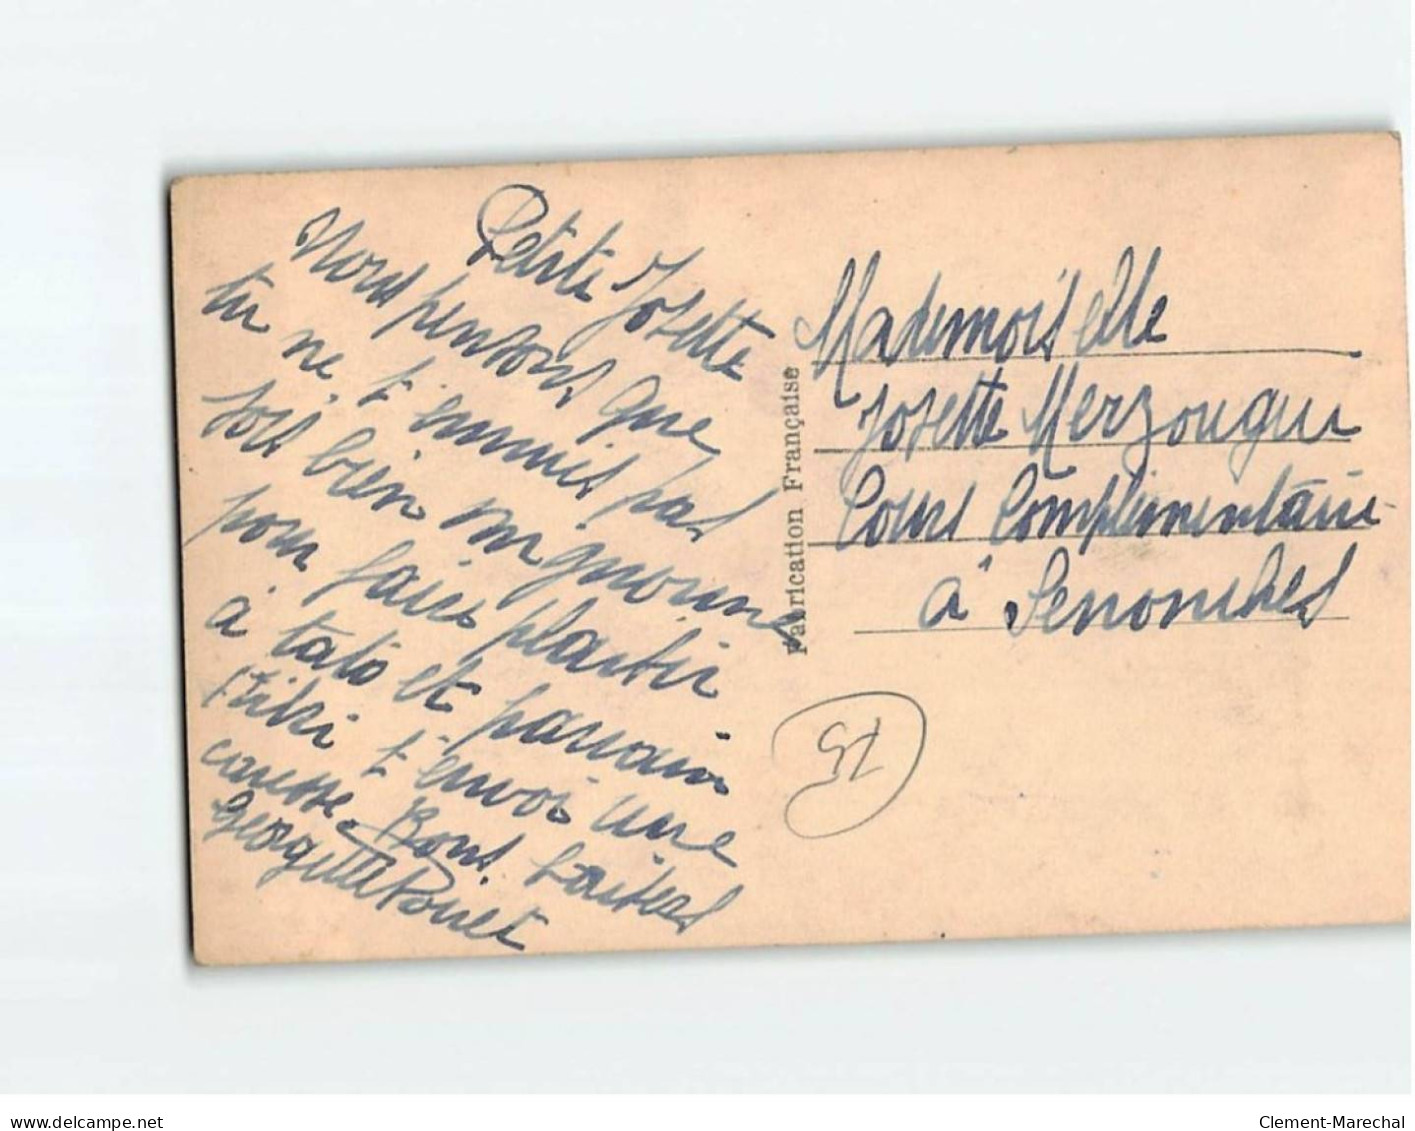 Petite Josette
Nous pensons que
tu ne t'ennuis pas
sois bien mignonne
pour faire plaisir
à tata et parrain
Kiki t'envoi une
caresse. Bons baisers
Georgette
Mademoiselle
Josette Merzougui
Cours Complémentaire
à Senonches
Fabrication Française
15
www.delcampe.net
Clement-Marechal